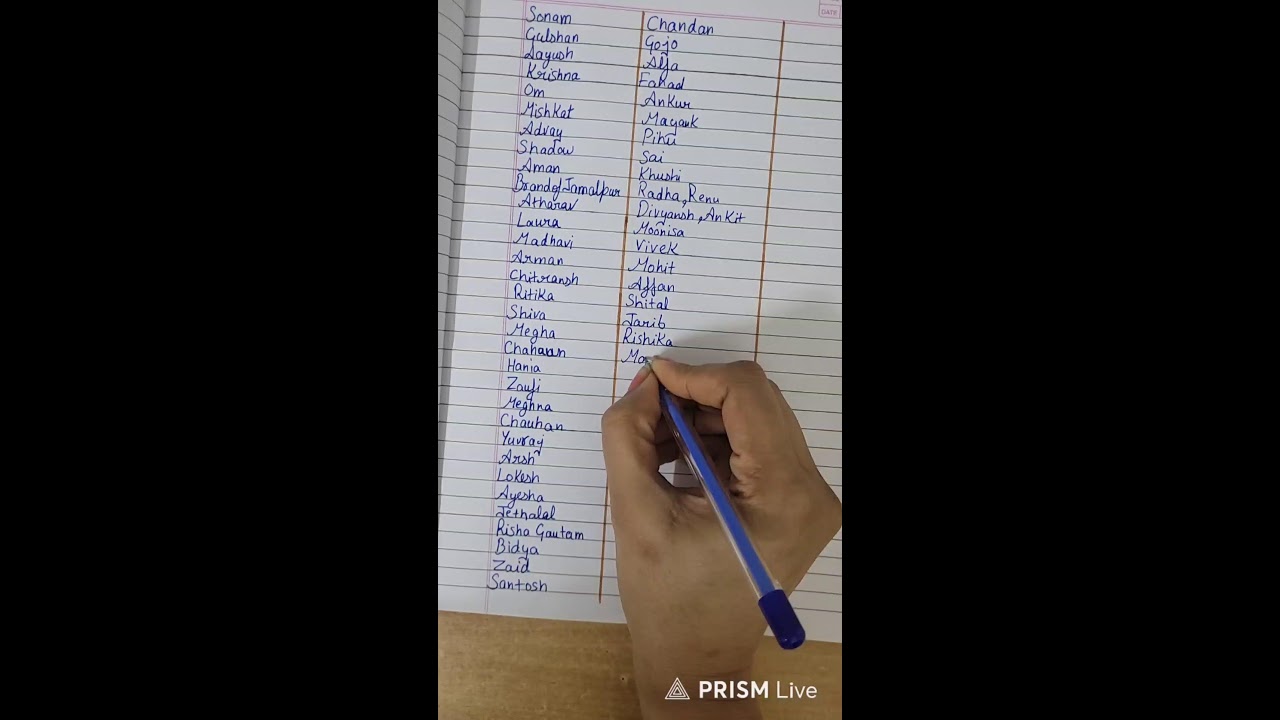 DATE
Sonam
Gulshan
Aayush
Krishna
Om
Mishkat
Advay
Shadow
Aman
Brand of Jamalpur
Atharav
Laura
Madhavi
Arman
Chitransh
Ritika
Shiva
Megha
Chahaun
Hania
Zaufi
Meghna
Chauhan
Yuvraj
Arsh
Lokesh
Ayesha
Jethalal
Risho Gautam
Bidya
Zaid
Santosh
Chandan
Gojo
Alfa
Fahad
Ankur
Mayank
Pihu
Sai
Khushi
Radha, Renu
Divyansh, Ankit
Moonisa
Vivek
Mohit
Affan
Shital
Jarib
Rishika
Mo
PRISM Live